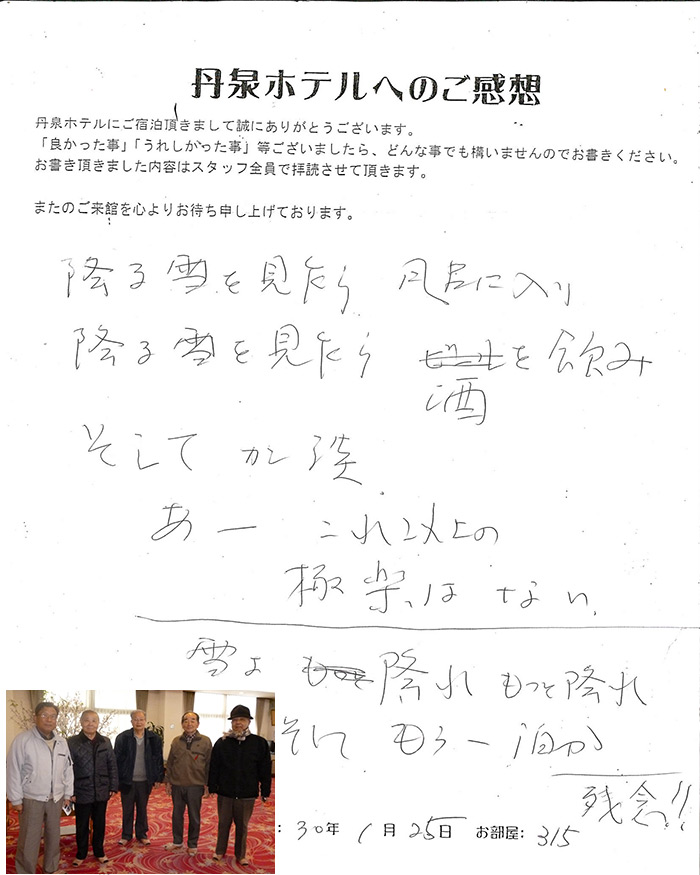 丹泉ホテルへのご感想
丹泉ホテルにご宿泊頂きまして誠にありがとうございます。
「良かった事」「うれしかった事」等ございましたら、どんな事でも構いませんのでお書きください。
お書き頂きました内容はスタッフ全員で拝読させて頂きます。
またのご来館を心よりお待ち申し上げております。
降る雪を見たり 風呂に入り
降る雪を見たり ビールを飲み
酒
そして 談
あー これ以上の
極楽はない、
雪よ もっと降れ もっと降れ
そして もう一泊か
残念!!
: 30年 1月25日 お部屋: 315